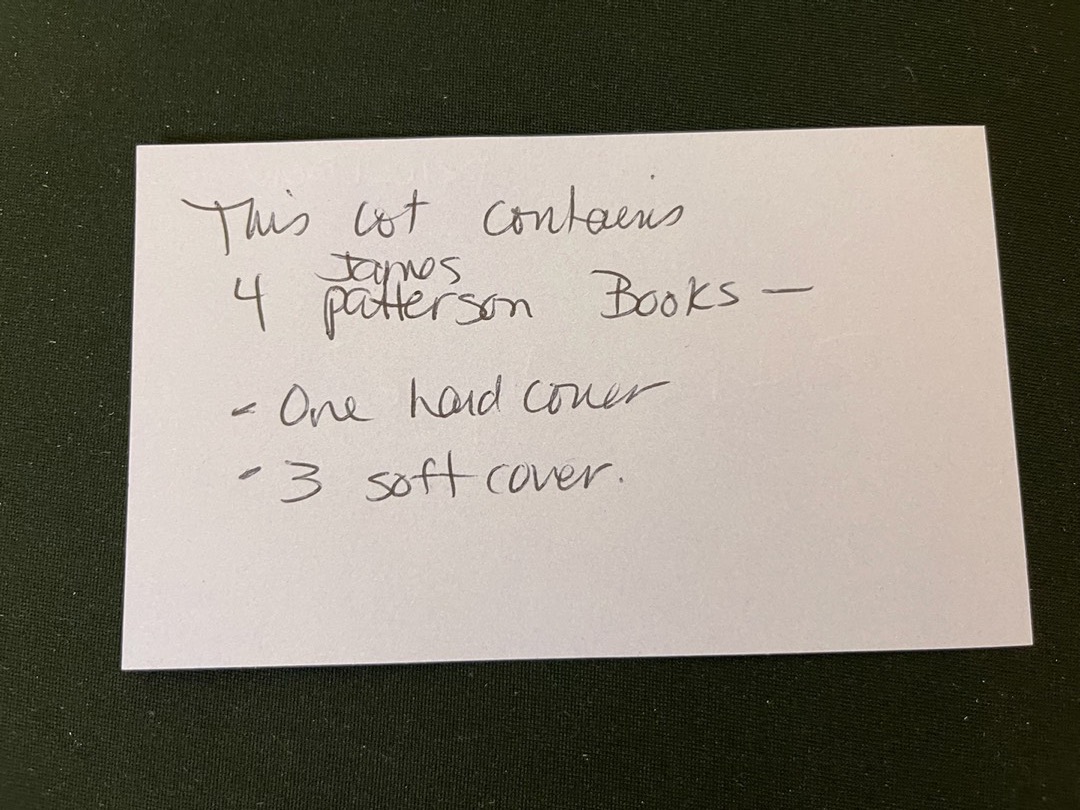 This lot contains
4 James patterson Books —
- One hard cover
- 3 soft cover.